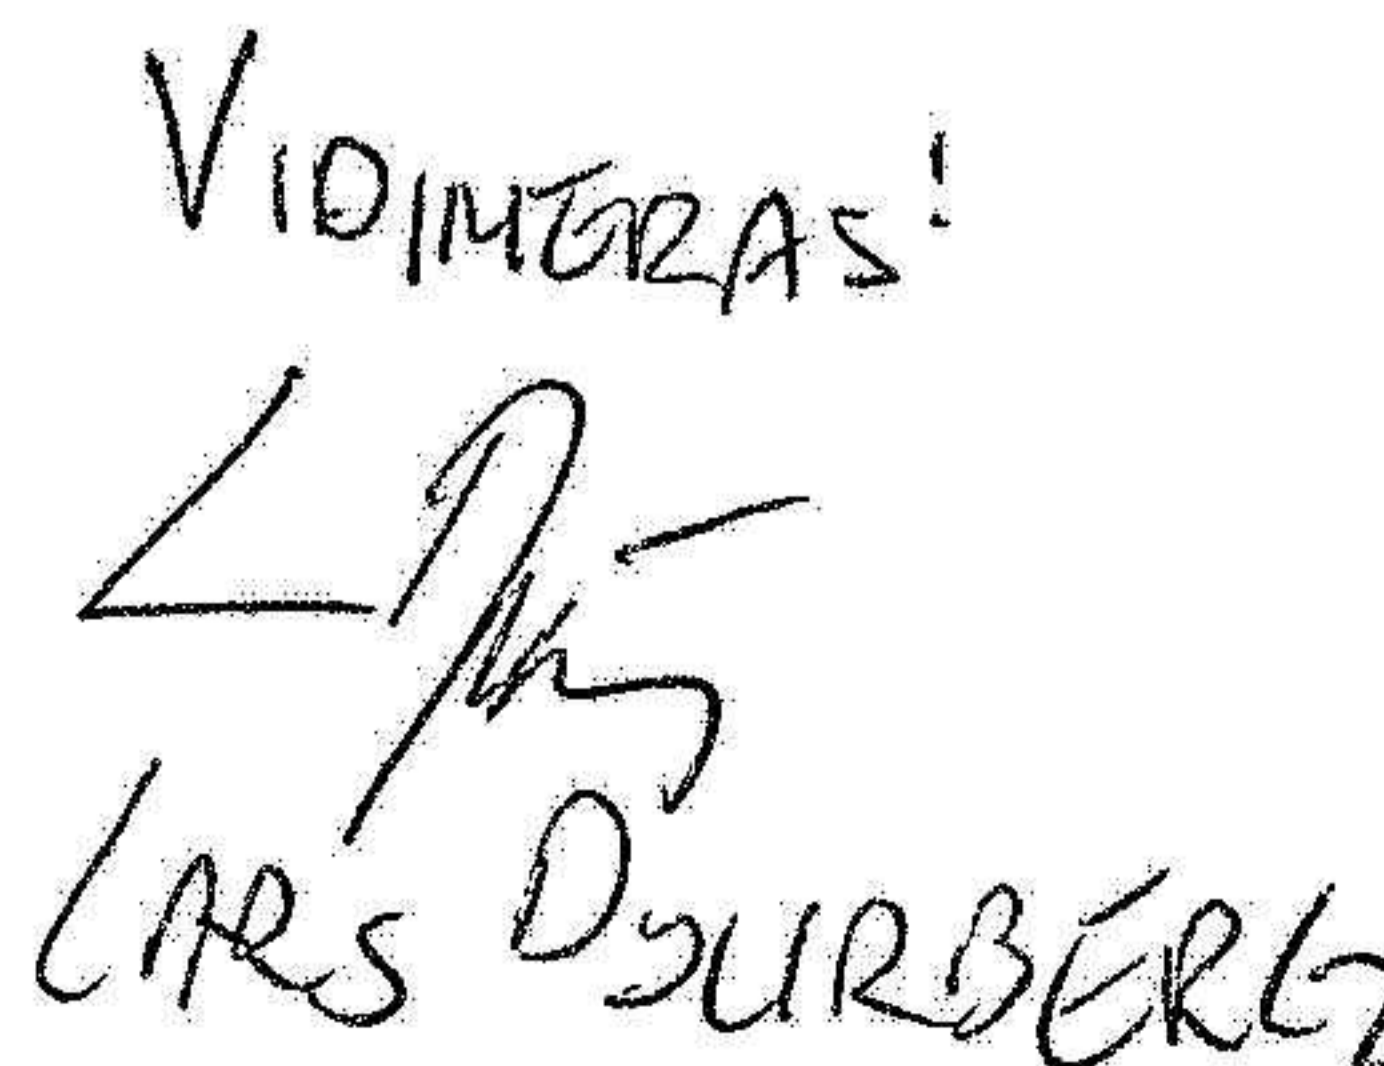 VIDIMERAS!
LARS DJURBERG